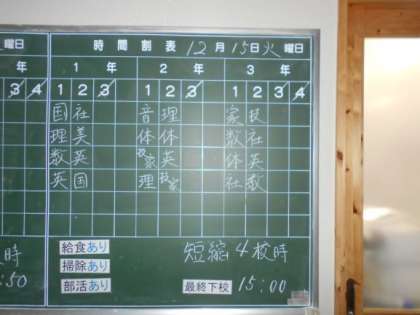 曜日 時間割表 12月15日火曜日
年 1年 2年 3年
3 4 1 2 3 1 2 3 1 2 3 4
国 社 音 理 家 技
理 美 体 体 数 社
数 英 技家 英 体 英
英 国 理 技家 社 数
時 給食あり 短縮4校時
掃除あり
:50 部活あり 最終下校 15:00